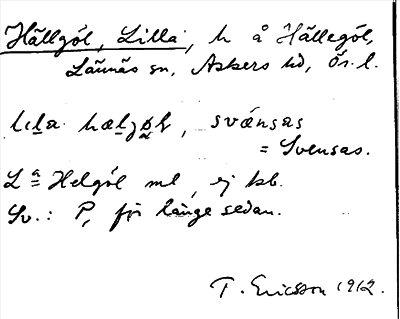 Hällgöl, Lilla, h å Hällegöl,
Lännäs sn, Askers hd, Ör. l.
lıla hælgøl, svænsas
= Svensas.
L:a Helgöl ml, ej kb.
Sv.: P, för länge sedan.
T. Ericsson 1912.